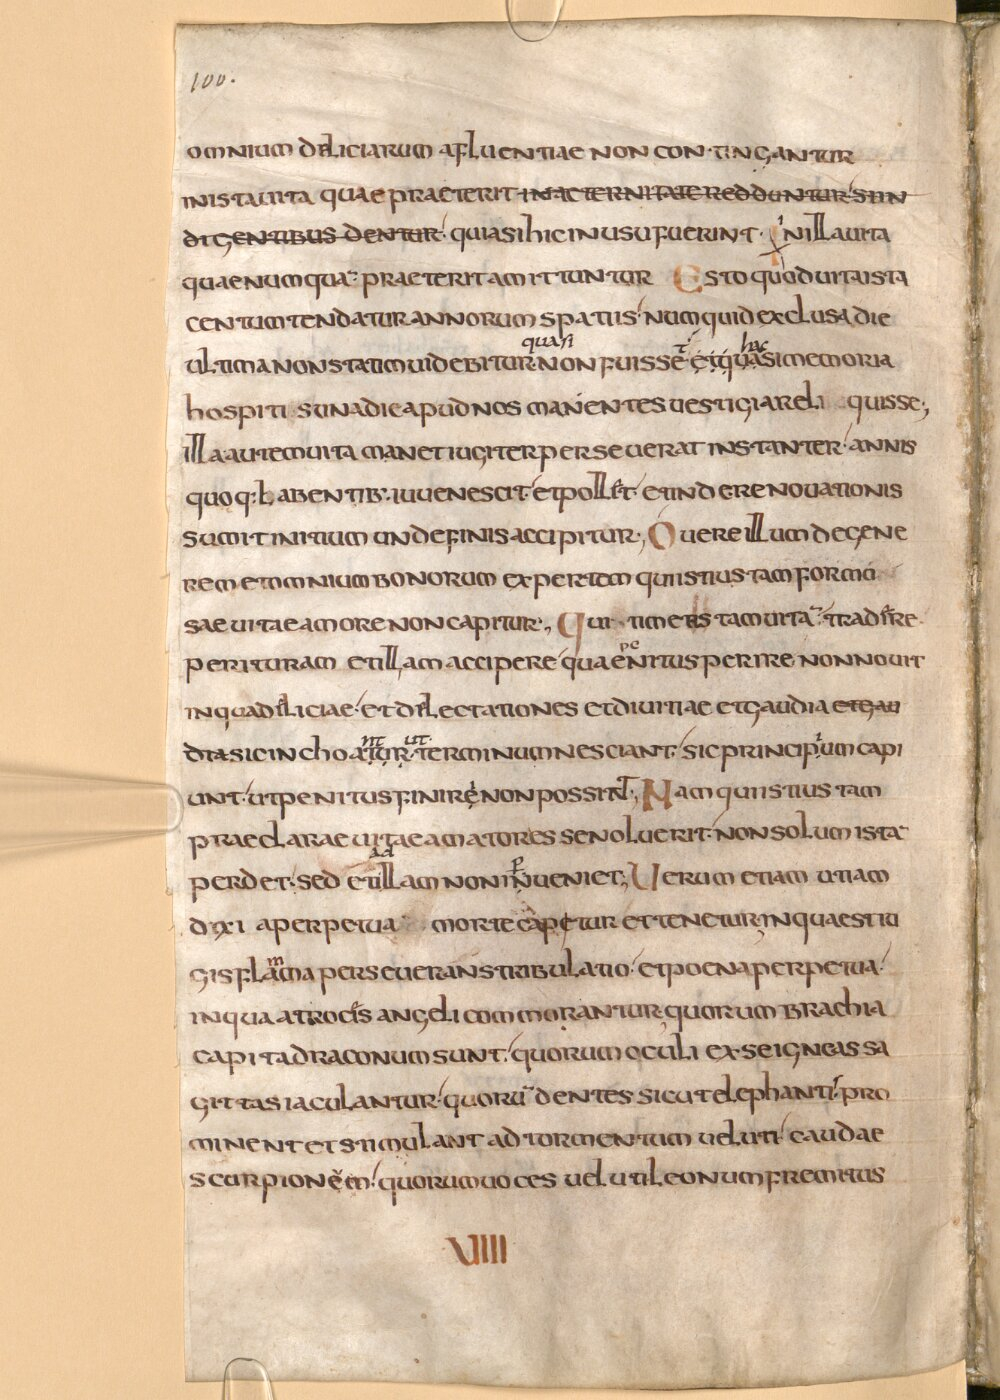 100.
omnium deliciarum afluentiae non contingantur
in ista uita quae praeterit in aeternitate redduntur sin
digentibus dentur. quia si hic in usu fuerint. in illa uita
quae numquā praeterit amittuntur Esto quod uita ista
centum tendatur annorum spatiis numquid exclusa die
quasi hac
ultima non statim uidebitur non fuisse et quasi memoria
hospiti sun a die apud nos manentes uestigia reli quisse;
illa autem uita manet iugiter perseuerat instanter annis
quoq: labentib: iuuenescit et pollet et inde renouationis
sumit initium unde finis accipitur; Quere illum degene
rem et omnium bonorum expertem qui istius tam formo
sae uitae amore non capitur; Qui timet istam uitā tradere
perituram et illam accipere quae penitus perire non nouit
in qua deliciae et delectationes et diuitiae et gaudia et gau
dia sic inchoantur ut terminum nesciant. sic principium capi
unt. ut penitus finire non possint; Nam qui istius tam
praeclarae uitae amatores se noluerit non solum istā
ad
perdet. sed et illam non inueniet; Uerum etiam utiam
dixi a perpetua morte capetur et tenetur in qua est iu
gis flamma perseuerans tribulatio et poena perpetua
in qua atroces angeli commorantur quorum brachia
capita draconum sunt. quorum oculi ex se igneas sa
gittas iaculantur quorū dentes sicut elephanti pro
minent et stimulant ad tormentum ueluti caudae
scurpionem quorum uoces uelut leonum fremitus
VIIII